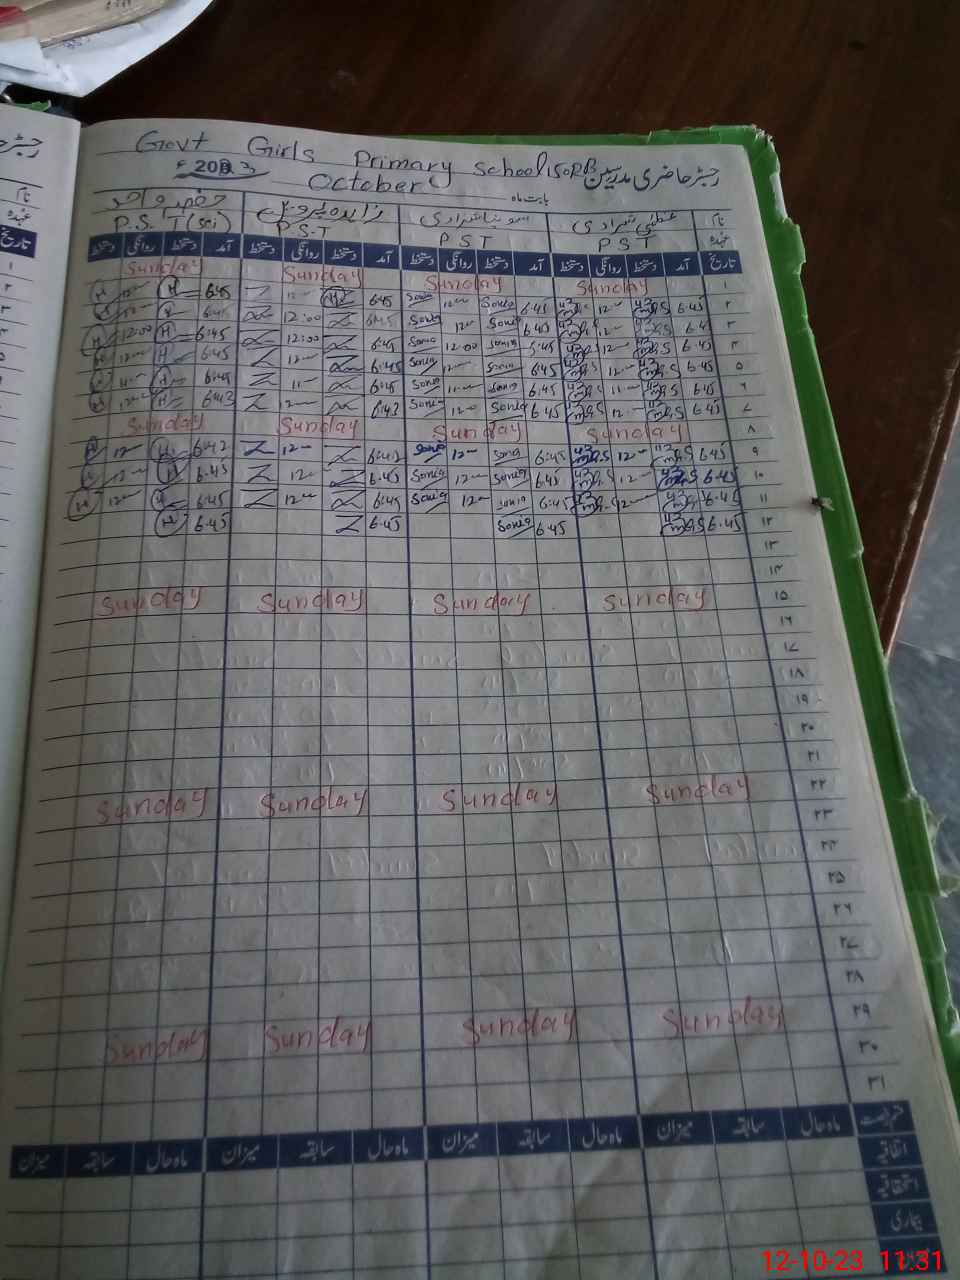 Govt Girls Primary School 150RB رجسٹر حاضری مدرسین
2023 October بابت ماہ
زاہدہ پروین نام
P.S.T (Sci) P.S.T P S T P S T عہدہ
دستخط روانگی دستخط آمد دستخط روانگی دستخط آمد دستخط روانگی دستخط آمد دستخط روانگی دستخط آمد تاریخ
Sunday Sunday Sunday Sunday ۱
H 12 H 6:45 12 6:45 Sonia 12 Sonia 6.45 12 6.45 ۲
12 6:45 12:00 6:45 Sonia 12 Sonia 6.45 12 6.4 ۳
H 12:00 H 6:45 12:00 6:45 Sonia 12:00 Sonia 6.45 12 6.45 ۴
H 12:00 H 6:45 12 6:45 Sonia 12 Sonia 6.45 12 6.45 ۵
11 H 6:45 11 6:45 Sonia 11 Sonia 6.45 11 6.45 ۶
12 H 6:43 12 6:43 Sonia 12 Sonia 6.45 12 6.45 ۷
Sunday Sunday Sunday Sunday ۸
H 12 H 6:42 12 6:42 Sonia 12 Sonia 6.45 12 6.45 ۹
12 H 6.45 12 6.45 Sonia 12 Sonia 6.45 12 6.45 ۱۰
H 12 H 6.45 12 6:45 Sonia 12 Sonia 6.45 12 6.45 ۱۱
H 6.45 6.45 Sonia 6.45 6.45 ۱۲
۱۳
۱۴
Sunday Sunday Sunday Sunday ۱۵
۱۶
۱۷
۱۸
۱۹
۲۰
۲۱
Sunday Sunday Sunday Sunday ۲۲
۲۳
۲۴
۲۵
۲۶
۲۷
۲۸
Sunday Sunday Sunday Sunday ۲۹
۳۰
۳۱
میزان سابقہ ماہ حال میزان سابقہ ماہ حال میزان سابقہ ماہ حال میزان سابقہ ماہ حال قسم رخصت
اتفاقیہ
استحقاقیہ
بیماری
12-10-23 11:31